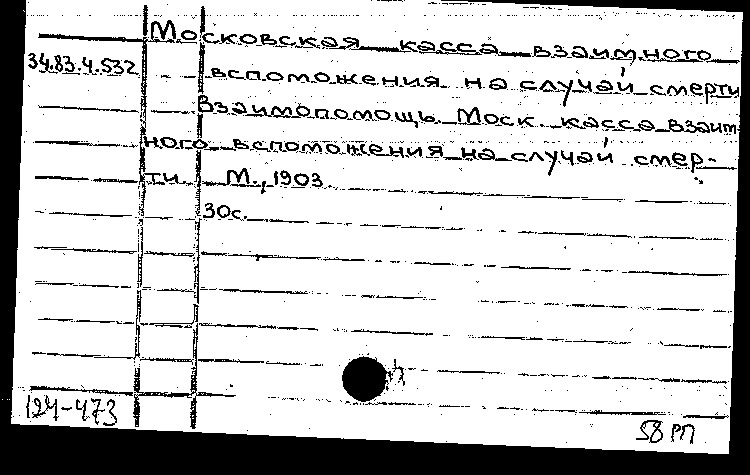 Московская касса взаимного
34.83.4.532 вспоможения на случай смерти
Взаимопомощь. Моск. касса взаим-
ного вспоможения на случай смер-
ти. М., 1903.
30с.
124-473
58 РП